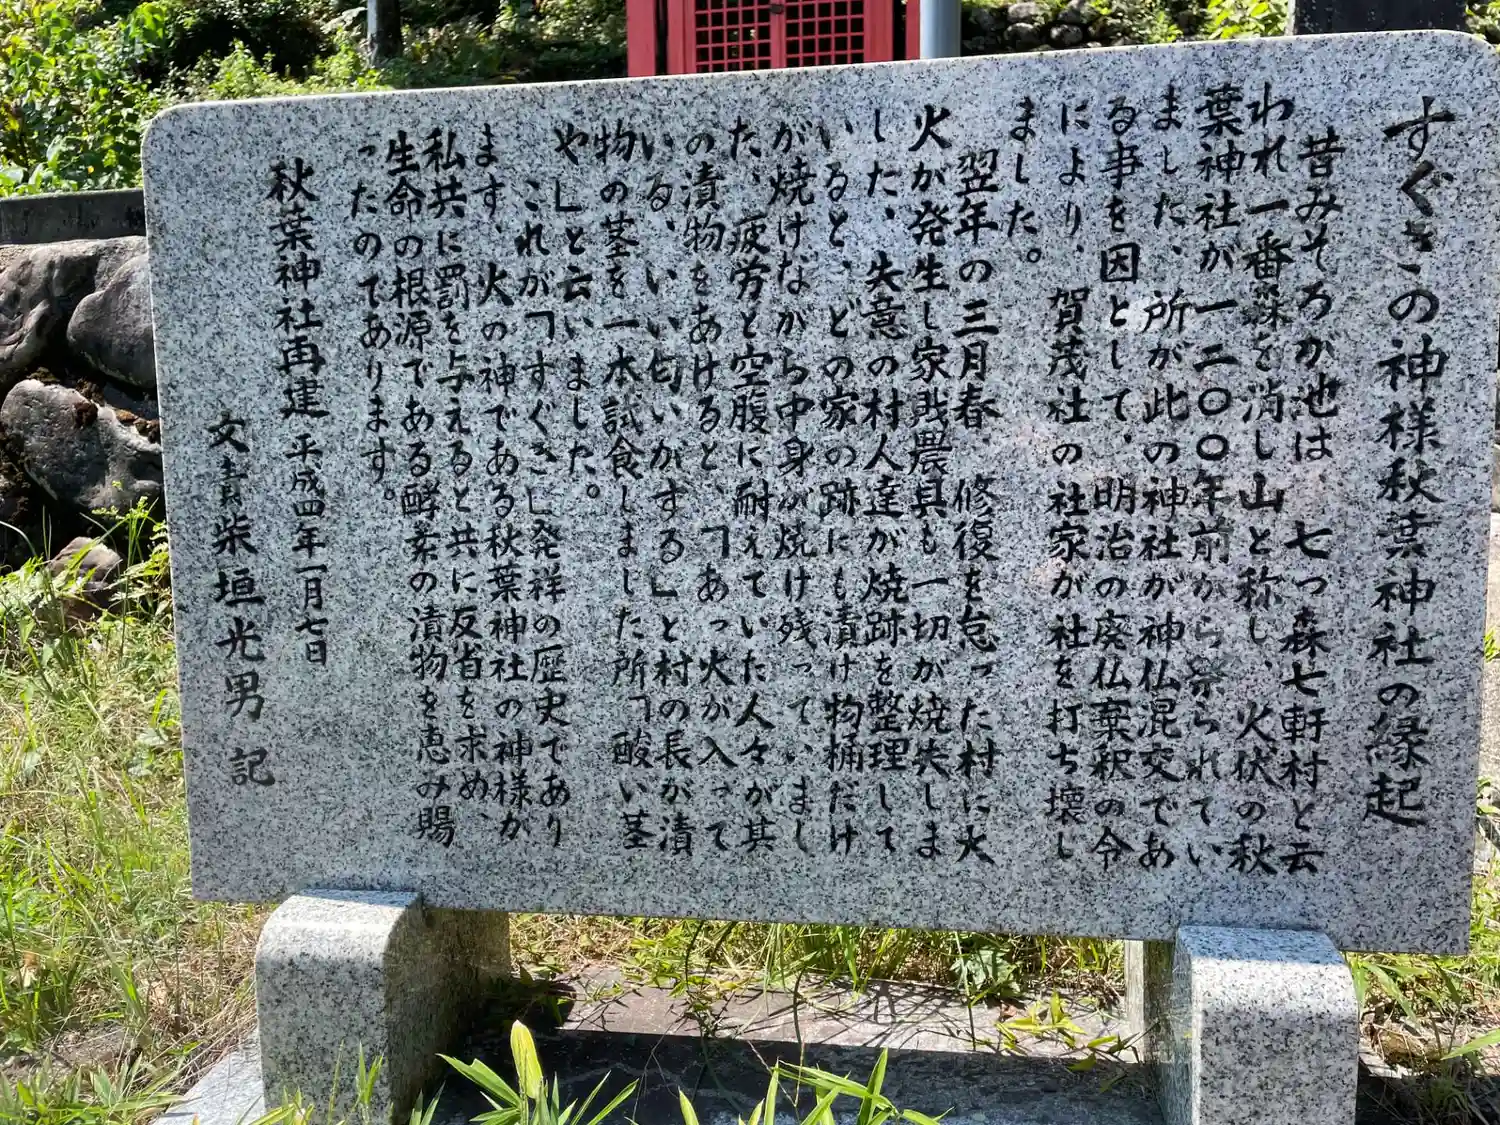 すぐきの神様秋葉神社の縁起
昔みそろが池は、七つ森七軒村と云
われ一番森を消し山と称し、火伏の秋
葉神社が一二〇〇年前から祭られてい
ました、所が此の神社が神仏混交であ
る事を因として、明治の廃仏棄釈の令
により、賀茂社の社家が社を打ち壊し
ました。
翌年の三月春 修復を怠った村に火
火が発生し家我農具も一切が焼失しま
した、失意の村人達が焼跡を整理して
いると、どの家の跡にも漬け物桶だけ
が焼けながら中身が焼け残っていまし
た、疲労と空腹に耐えていた人々が其
の漬物をあけると、「あっ火が入って
いる、いい匂いがする」と村の長が漬
物の茎を一本試食しました所「酸い茎
や」と云いました。
これが「すぐき」発祥の歴史であり
ます、火の神である秋葉神社の神様が
私共に罰を与えると共に反省を求め、
生命の根源である酵素の漬物を恵み賜
ったのであります。
秋葉神社再建 平成四年一月七日
文責 柴垣光男 記